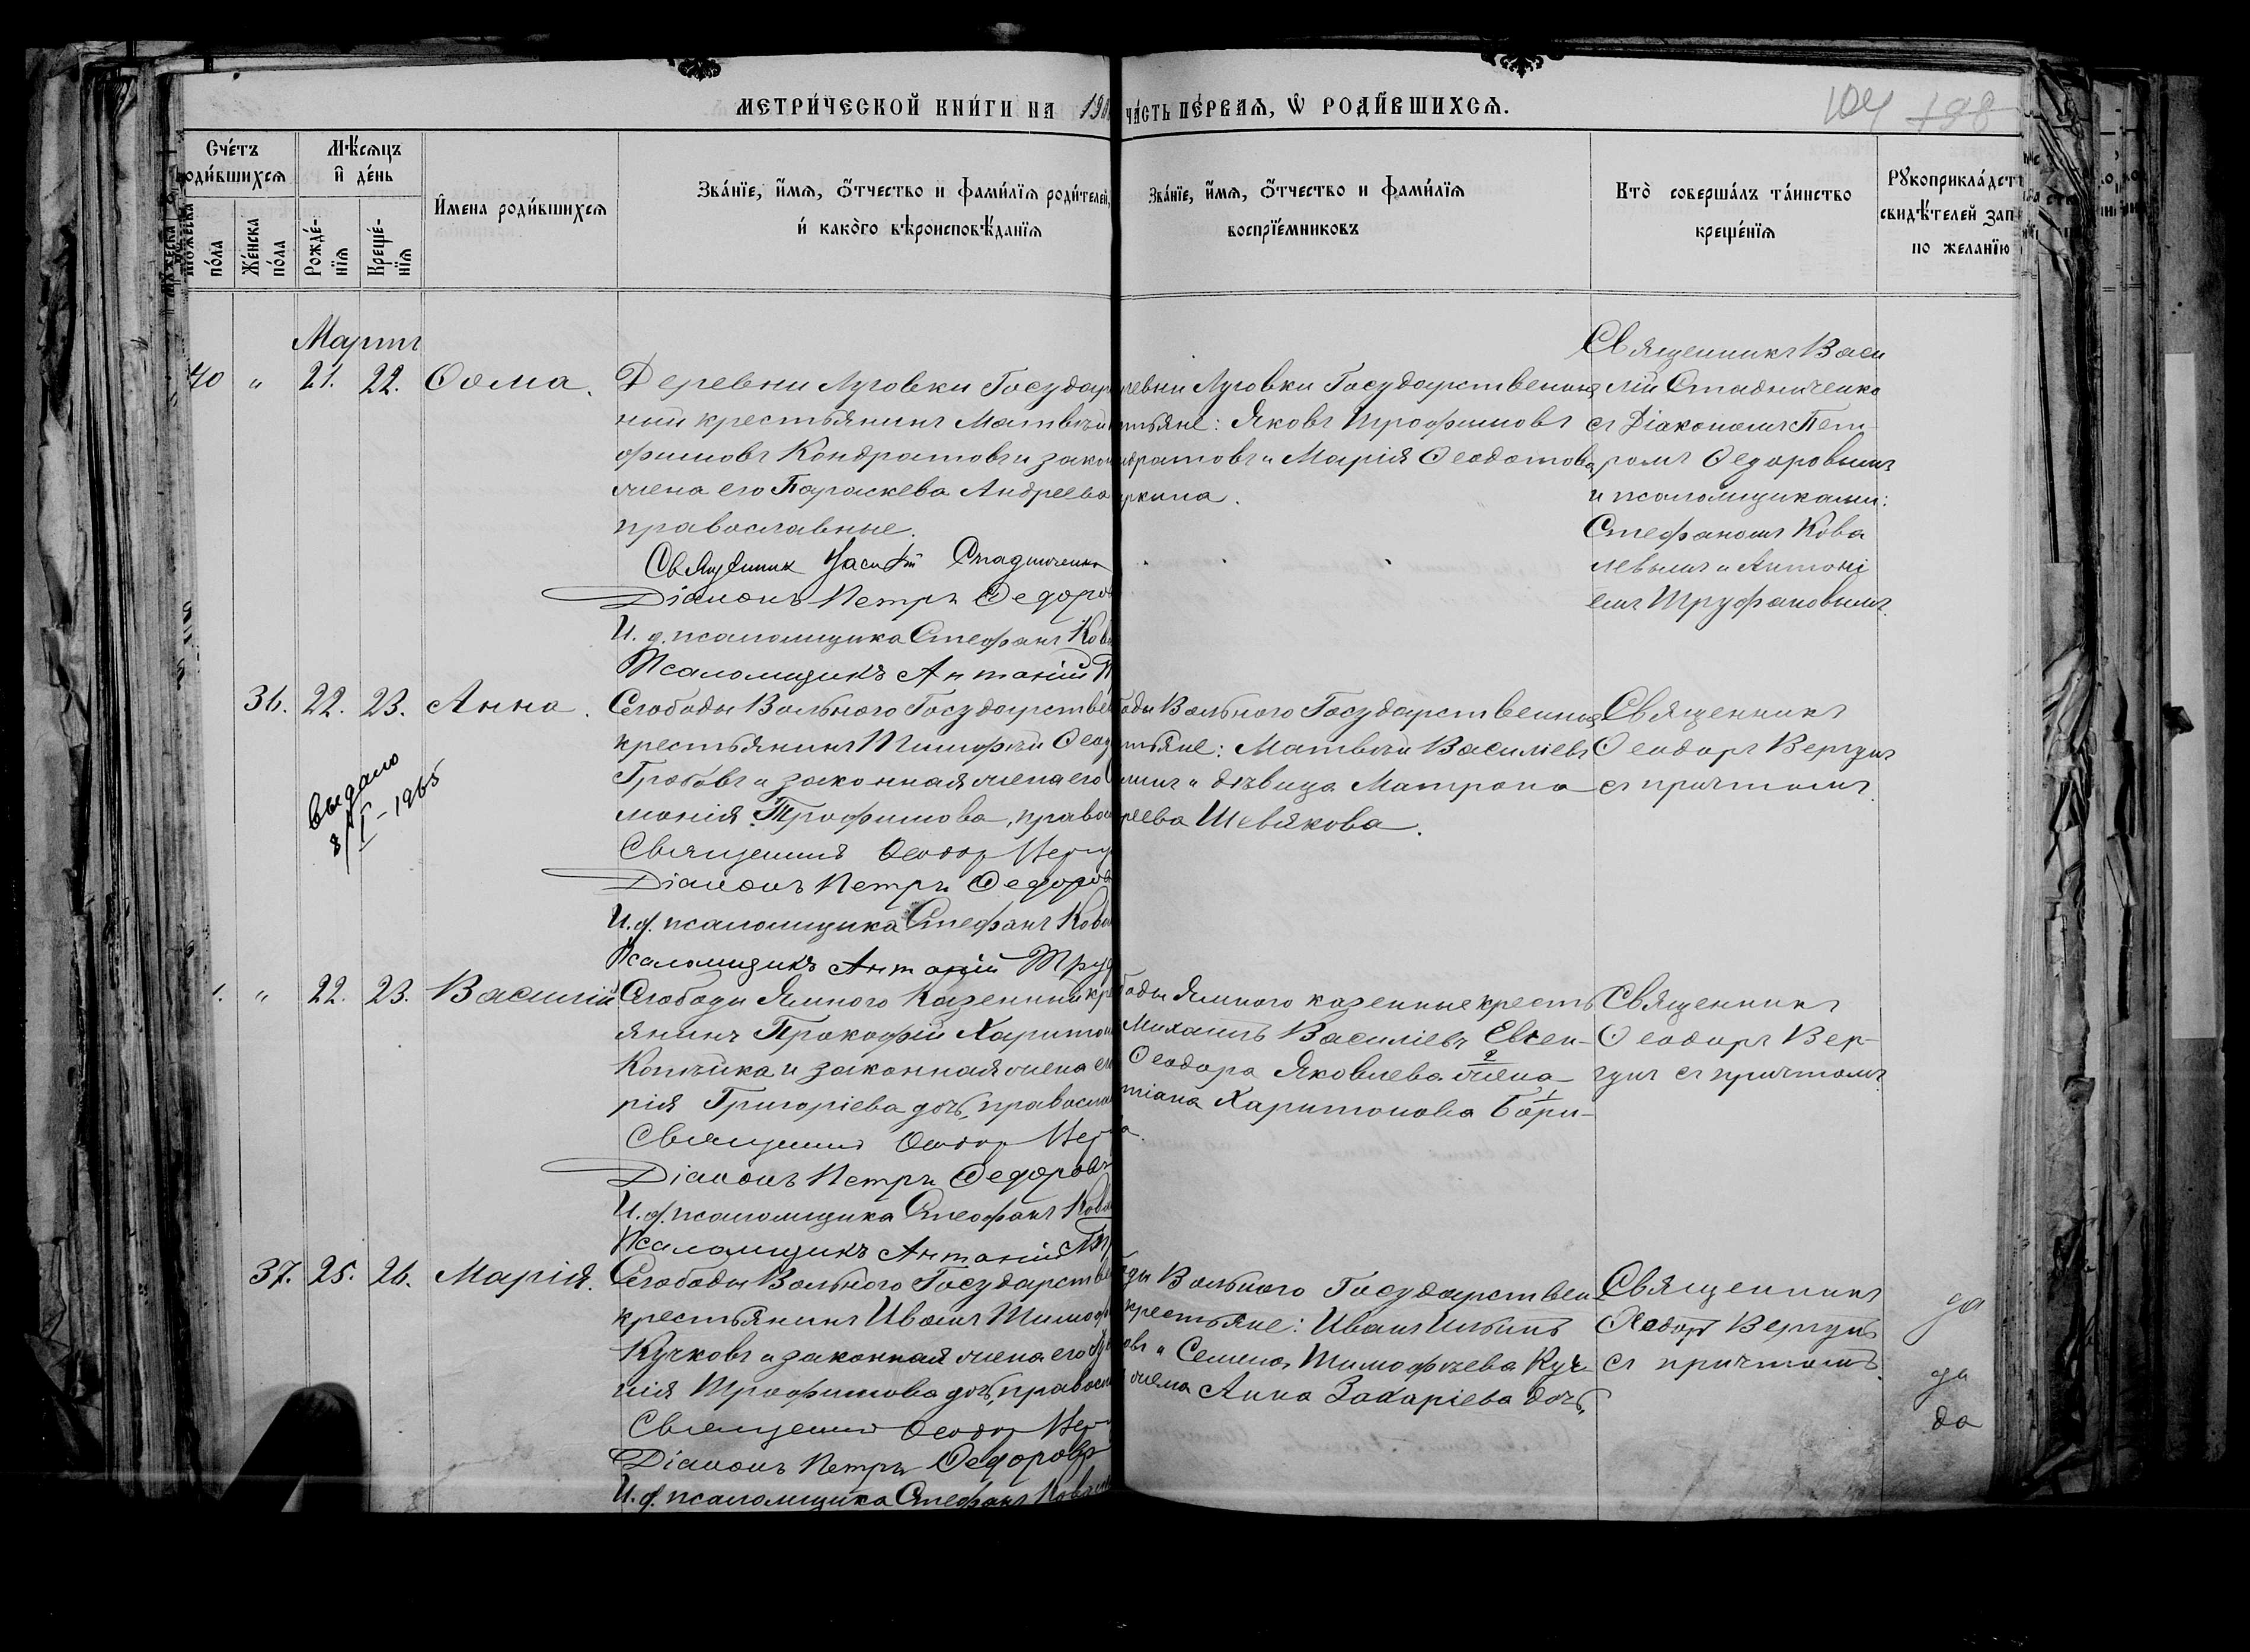 МЕТРИ́ЧЕСКОЙ КНИ́ГИ НА 190
ЧА́СТЬ ПЕ́РВАѦ, Ѡ҆ РОДИ́ВШИХСѦ.
104 198
Сче́тъ
роди́вшихсѧ
Мѣ́сѧцъ
и҆ де́нь
Мꙋ́жеска
по́ла
Же́нска
по́ла
Рожде́-
нїѧ
Креще́-
нїѧ
И҆мена роди́вшихсѧ
Зва́нїе, и҆́мѧ, ѻ҆́тчество и фами́лїѧ роди́телей,
и҆ како́гѡ вѣроисповѣ́данїѧ
Зва́нїе, и҆́мѧ, ѻ҆́тчество и фами́лїѧ
воспрїе́мниковъ
Кто̀ соверша́лъ та́инство
креще́нїѧ
Рꙋкоприкла́дст
свидѣ́телей зап
по желанїю
Мартъ
40 " 21. 22. Ѳома.
Деревни Луговки Государ
ный крестьянинъ Матвѣй
фимовъ Кондратовъ и закон
жена его Параскева Андреева
православные.
Священник Василій Стадниченко
Діаконъ Петръ Ѳедоров
И. д. псаломщика Стефанъ Ков
Псаломщикъ Антоній
ревни Луговки Государственные
тьяне: Яковъ Трофимовъ
дратовъ и Марія Ѳеодотова
ркина.
Священникъ Васи
лій Стадниченко
съ Діакономъ Пет-
ромъ Ѳедоровымъ
и псаломщиками:
Стефаномъ Кова
левымъ и Антоні
емъ Труфановымъ.
36. 22. 23. Анна.
Слободы Вольного Государствен
крестьянинъ Тимофѣй Ѳеод
Гробовъ и законная жена его
монія Трофимова, правос
Священник Ѳеодор Верг
Діаконъ Петръ Ѳедоров
И. д. псаломщика Стефанъ Ков
Псаломщикъ Антоній Труф
выдано
8/I-1965
оды Вольного Государственные
тьяне: Матвѣй Василіевъ
и дѣвица Матрона
реева Шевякова.
Священникъ
Ѳеодоръ Вергунъ
съ причтомъ.
1. " 22. 23. Василій
Слободы Ямного Казенный кре
янинъ Прокофій Харитон
Коптѣйка и законная жена ег
рія Григоріева дочь, правосла
Священник Ѳеодор Вер
Діаконъ Петръ Ѳедоровъ
И. д. псаломщика Стефанъ Кова
Псаломщикъ Антоній Тр
оды Ямного казенные кресть
Михаилъ Василіевъ Евсен-
Ѳеодора Яковлева жена 2
тіана Харитонова Бори- 1
а.
Священникъ
Ѳеодоръ Вер-
гунъ съ причтомъ.
37. 25. 26. Марія.
Слободы Вольного Государстве
крестьянинъ Иванъ Тимоф
Кучковъ и законная жена его
нія Трофимова дочь, правосл
Священник Ѳеодор Вер
Діаконъ Петръ Ѳедоровъ
И. д. псаломщика Стефанъ Ков
ды Вольного Государствен
крестьяне: Иванъ Ильинъ
овъ и Семена Тимофѣева Куч
жена Анна Захаріева дочь,
Священникъ
Ѳеодоръ Вергунъ
съ причтомъ.
да
да
да